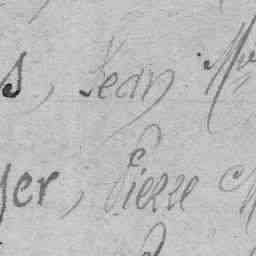 s, Jean Mr
yer, Pierre M